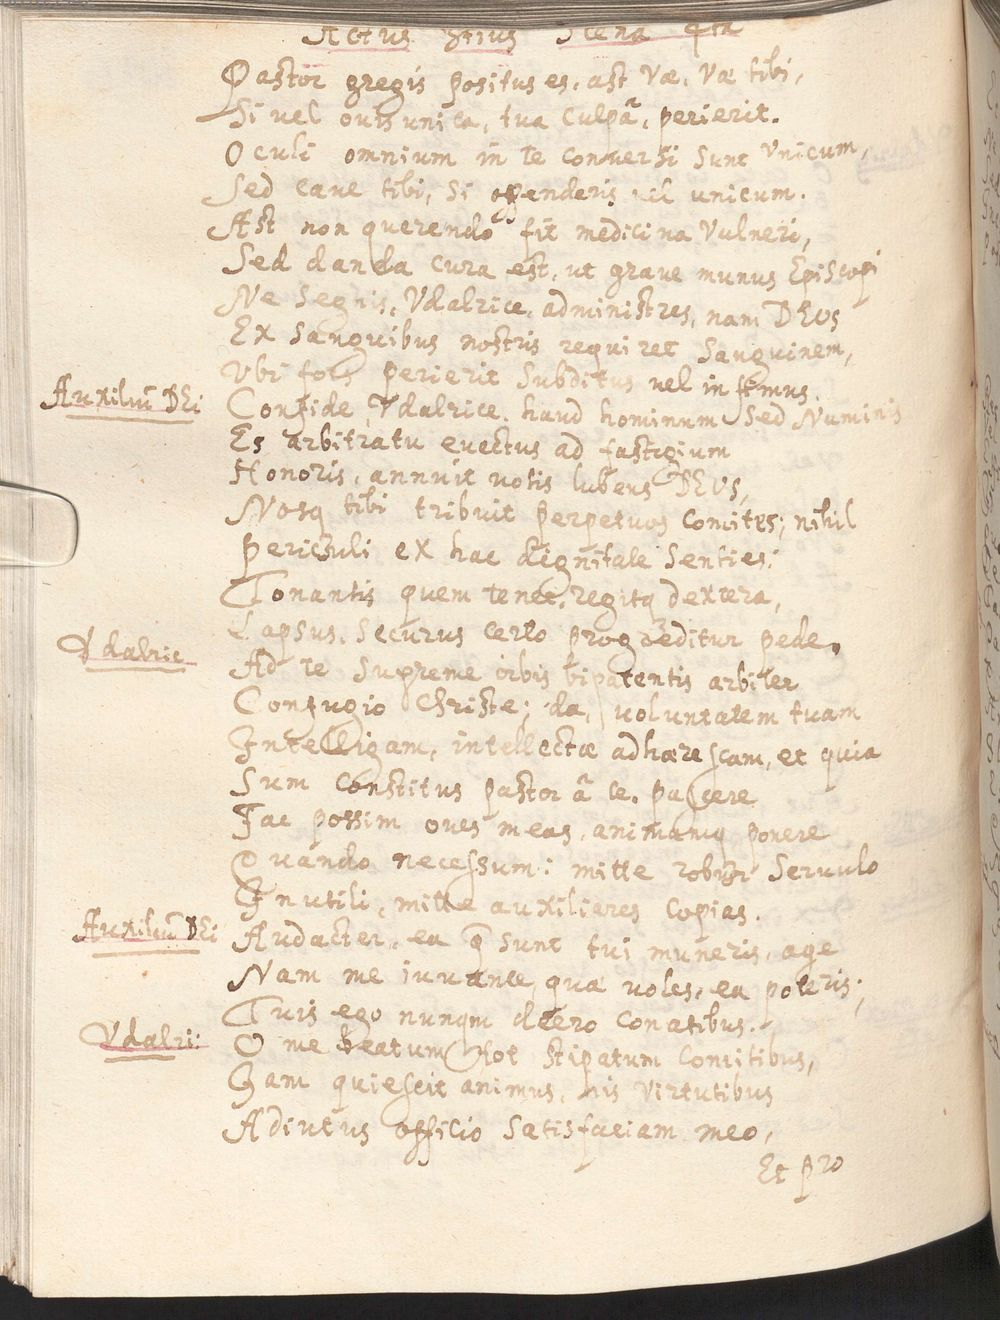 Actus 3tius Scena 4ta
Pastor gregis positus es, ast Væ, Væ tibi,
Si vel ovis unica, tua culpâ, perierit.
Oculi omnium in te conversi sunt Unicum,
Sed cave tibi, si offenderis vel unicum.
Ast non querendo fit medicina Vulneri,
Sed danda cura est, ut grave munus Episcopi
Ne Segnis, Vdalrice, administres, nam DEUS
Ex Sanguibus nostris requiret Sanguinem,
Vbi fors perierit Subditus vel infimus.
Auxiliũ DEi Confide Vdalrice, haud hominum Sed Numinis
Es arbitratu evectus ad fastigium
Honoris, annuit votis lubens DEUS,
Nosq tibi tribuit perpetuos comites; nihil
Periculi ex hac dignitate Senties:
Tonantis quem tenet, regitq dextera,
Lapsus, Securus certo progreditur pede.
Vdalric Ad te Supreme orbis bipatentis arbiter
Confugio Christe; da, voluntatem tuam
Intelligam, intellectæ adhærescam, et quia
Sum constitus pastor â te, pascere
Fac possim oves meas, animamq ponere
Quando necessum: mitte robur Servulo
Inutili, mitte auxiliares Copias.
Auxiliũ DEi Audacter, ea q̃ sunt tui muneris, age
Nam me iuvante, quæ voles, ea poteris;
Tuis ego nunqm deero conatibus.
Vdalri: O me beatum tot stipatum Comitibus,
Iam quiescit animus, his Virtutibus
Adiutus officio Satisfaciam meo,
Et pro